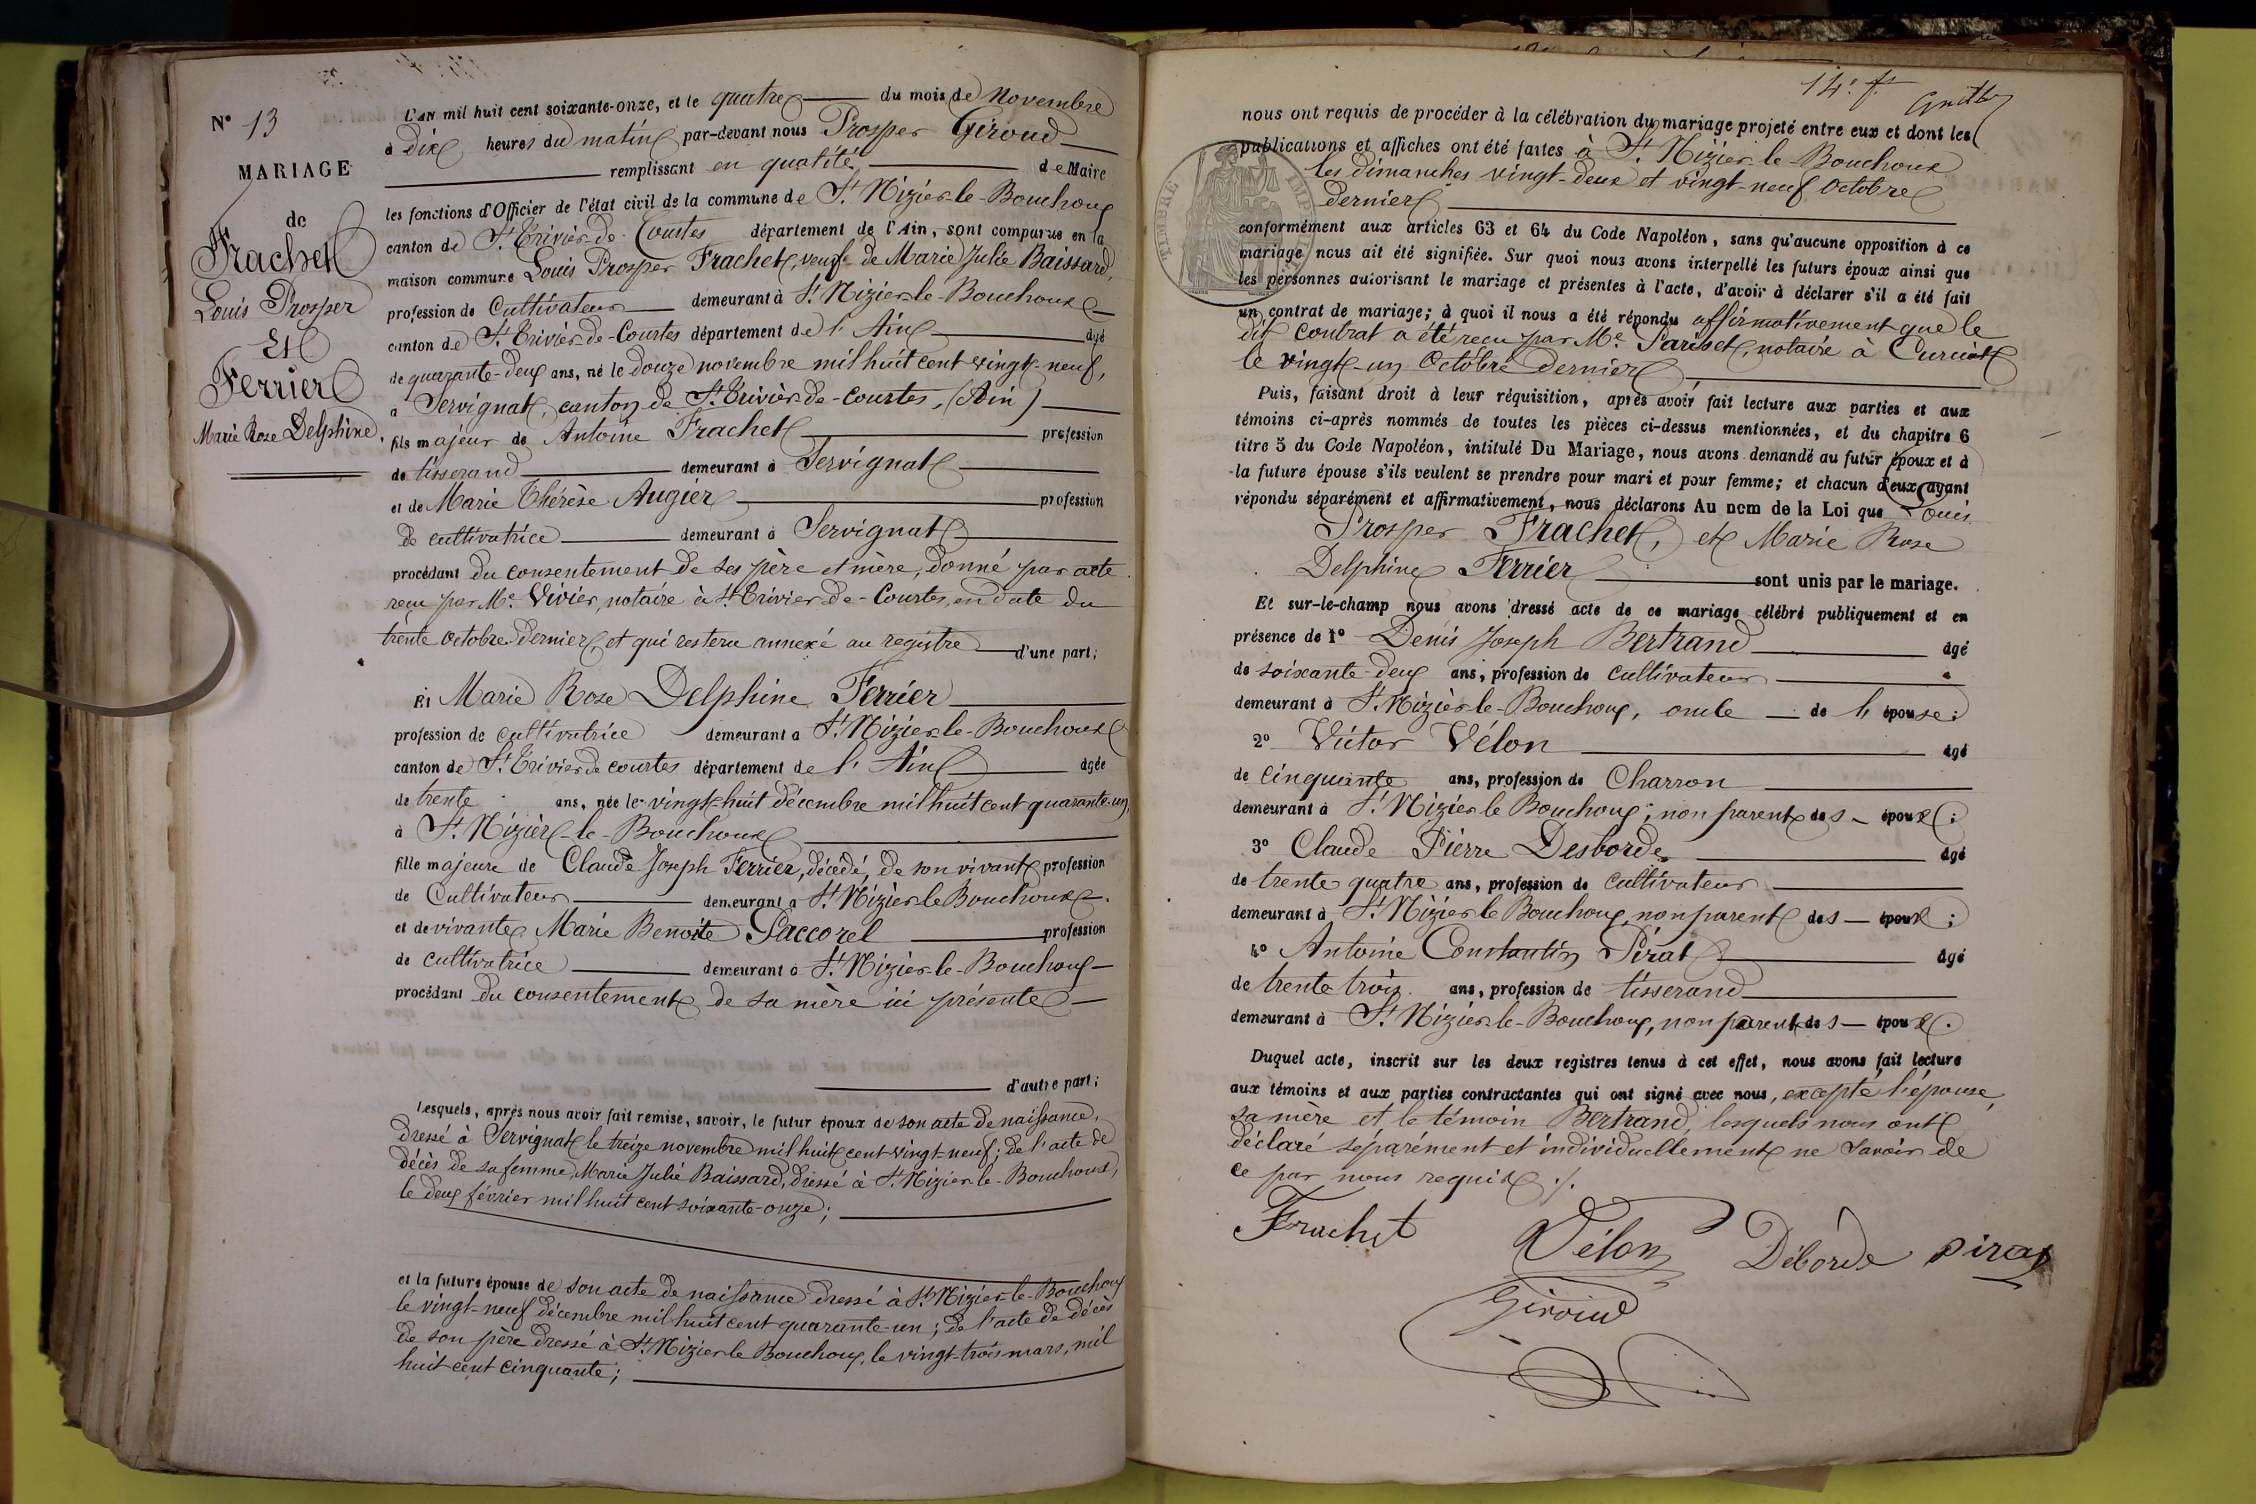 N° 13
MARIAGE
de
Frachet
Louis Prosper
Et
Ferrier
Marie Rose Delphine.
L'an mil huit cent soixante-onze, et le quatre du mois de Novembre
à Dix heures du matin par-devant nous Prosper Giroud
remplissant en qualité de Maire
les fonctions d'Officier de l'état civil de la commune de St Nizier-le-Bouchoux
canton de St Trivier-de-Courtes département de l'Ain, sont comparus en la
maison commune Louis Prosper Frachet, veuf de Marie Julie Baissard,
profession de Cultivateur demeurant à St Nizier-le-Bouchoux
canton de St Trivier-de-Courtes département de l'Ain âgé
de quarante-deux ans, né le douze novembre mil huit cent vingt-neuf,
à Servignat, canton de St Trivier-de-Courtes, (Ain)
fils majeur de Antoine Frachet profession
de tisserand demeurant à Servignat
et de Marie Thérèse Augier profession
de cultivatrice demeurant à Servignat
procédant du consentement de ses père et mère, donné par acte
reçu par Me Vivier, notaire à St Trivier-de-Courtes, en date du
trente octobre dernier, et qui restera annexé au registre d'une part;
Et Marie Rose Delphine Ferrier
profession de cultivatrice demeurant à St Nizier-le-Bouchoux
canton de St Trivier de courtes département de l'Ain âgée
de trente ans, née le vingt-huit décembre mil huit cent quarante-un,
à St Nizier-le-Bouchoux
fille majeure de Claude Joseph Ferrier, décédé, de son vivant profession
de Cultivateur demeurant à St Nizier le Bouchoux.
et de vivante Marie Benoite Paccorel profession
de cultivatrice demeurant à St Nizier-le-Bouchoux
procédant du consentement de sa mère ici présente
d'autre part;
Lesquels, après nous avoir fait remise, savoir, le futur époux de son acte de naissance,
dressé à Servignat le treize novembre mil huit cent vingt-neuf; de l'acte de
décès de sa femme, Marie Julie Baissard, dressé à St Nizier-le-Bouchoux,
le deux février mil huit cent soixante-onze;
et la future épouse de son acte de naissance dressé à St Nizier-le-Bouchoux
le vingt-neuf décembre mil huit cent quarante-un; de l'acte de décès
de son père dressé à St Nizier le Bouchoux, le vingt-trois mars, mil
huit cent cinquante;
14e ft
nous ont requis de procéder à la célébration du mariage projeté entre eux et dont les
publications et affiches ont été faites à St Nizier-le-Bouchoux
les dimanches vingt-deux et vingt-neuf octobre
dernier
TIMBRE IMP
conformément aux articles 63 et 64 du Code Napoléon, sans qu'aucune opposition à ce
mariage nous ait été signifiée. Sur quoi nous avons interpellé les futurs époux ainsi que
les personnes autorisant le mariage et présentes à l'acte, d'avoir à déclarer s'il a été fait
un contrat de mariage; à quoi il nous a été répondu affirmativement que le
dit contrat a été reçu par Me Pariset, notaire à Curciat
le vingt-un Octobre dernier
Puis, faisant droit à leur réquisition, après avoir fait lecture aux parties et aux
témoins ci-après nommés de toutes les pièces ci-dessus mentionnées, et du chapitre 6
titre 5 du Code Napoléon, intitulé Du Mariage, nous avons demandé au futur époux et à
la future épouse s'ils veulent se prendre pour mari et pour femme; et chacun d'eux ayant
répondu séparément et affirmativement, nous déclarons Au nom de la Loi que Louis
Prosper Frachet, et Marie Rose
Delphine Ferrier sont unis par le mariage.
Et sur-le-champ nous avons dressé acte de ce mariage célébré publiquement et en
présence de 1° Denis Joseph Bertrand âgé
de soixante-deux ans, profession de cultivateur
demeurant à St Nizier-le-Bouchoux, oncle de l'épouse;
2° Victor Vélon âgé
de cinquante ans, profession de Charron
demeurant à St Nizier le Bouchoux; non parent des époux;
3° Claude Pierre Desborde âgé
de trente quatre ans, profession de cultivateur
demeurant à St Nizier le Bouchoux, non parent des époux;
4° Antoine Constantin Pirat âgé
de trente trois ans, profession de tisserand
demeurant à St Nizier-le-Bouchoux, non parent des époux.
Duquel acte, inscrit sur les deux registres tenus à cet effet, nous avons fait lecture
aux témoins et aux parties contractantes qui ont signé avec nous, excepté l'épouse,
sa mère et le témoin Bertrand, lesquels nous ont
déclaré séparément et individuellement ne savoir de
ce par nous requis ./.
Frachet Vélon Déborde Pirat
Giroud